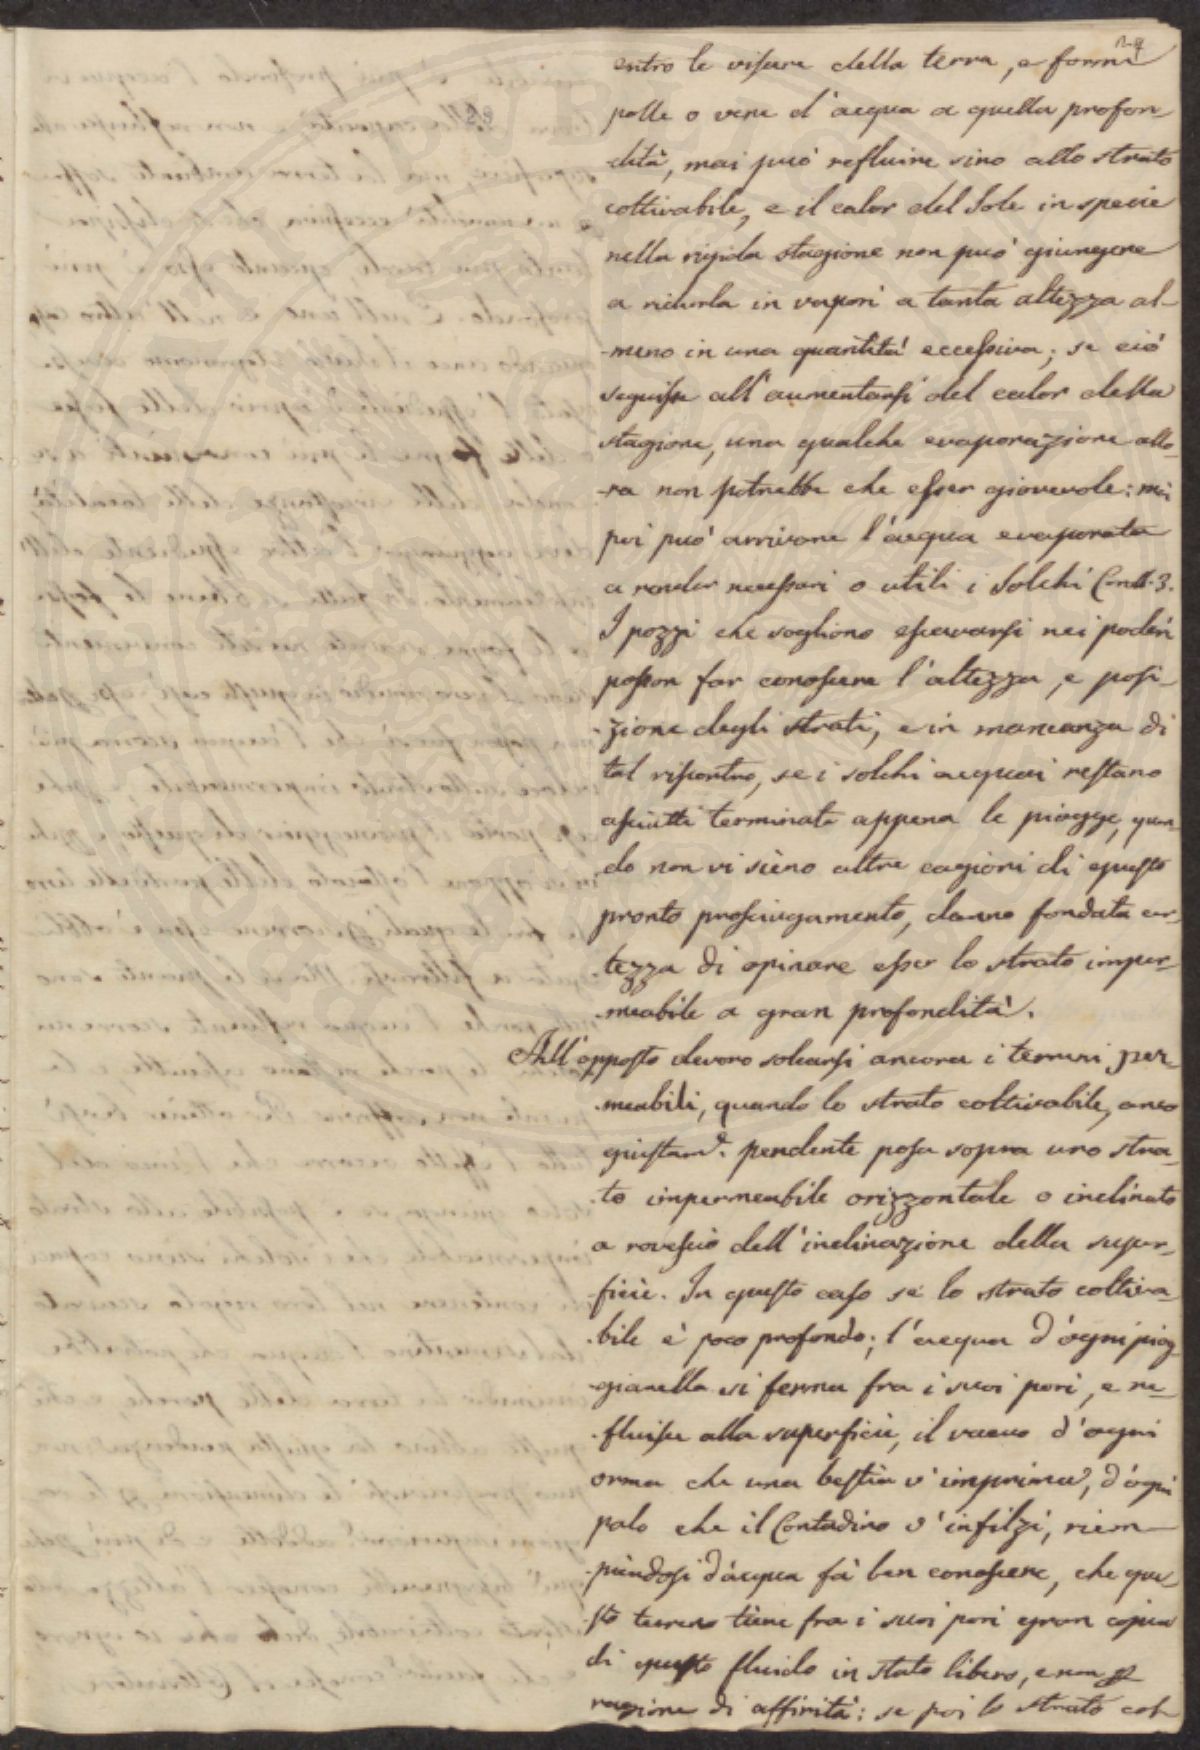 24
entro le viscere della terra, e formi
polle o vene d'acqua a quella profon-
dità, mai può refluire sino allo strato
coltivabile, e il calor del Sole in specie
nella rigida stagione non può giungere
a ridurla in vapori a tanta altezza al-
-meno in una quantità eccessiva; se ciò
seguisse all'aumentarsi del calor della
stagione, una qualche evaporazione allo-
-ra non potrebbe che esser giovevole: mai
poi può arrivare l'acqua evaporata
a render necessari o utili i Solchi Cond. 3.
I pozzi che sogliono escavarsi nei poderi
posson far conoscere l'altezza, e posi-
-zione degli strati, e in mancanza di
tal riscontro, se i solchi acquai restano
asciutti terminate appena le piogge, quan-
-do non vi sièno altre cagioni di questo
pronto prosciugamento, danno fondata cer-
-tezza di opinare esser lo strato imper-
-meabile a gran profondità.
All'opposto devono solcarsi ancora i terreni per-
-meabili, quando lo strato coltivabile, anco
giustam.e pendente posa sopra uno stra-
-to impermeabile orizzontale o inclinato
a rovescio dell'inclinazione della super-
-ficie. In questo caso se lo strato coltiva-
-bile è poco profondo; l'acqua d'ogni piog-
-gianella si ferma fra i suoi pori, e re-
-fluisce alla superficie, il vacuo d'ogni
orma che una bestia v'imprima, d'ogni
palo che il Contadino v'infilzi, riem-
-piendosi d'acqua fà ben conoscere, che que-
-sto terreno tiene fra i suoi pori gran copia
di questo fluido in stato libero, e non p
ragione di affinità: se poi lo strato col-